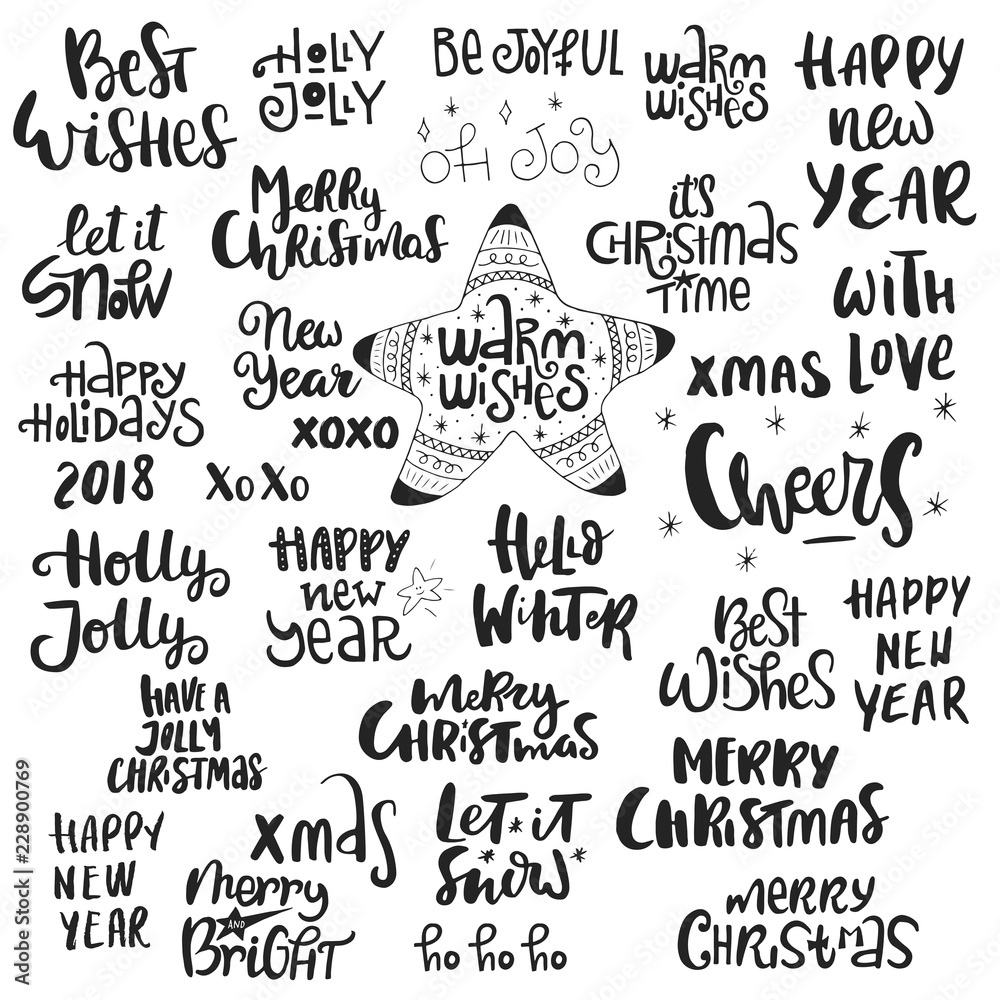 Best
Wishes
HOLLY
JOLLY
BE JOYFUL
OH JOY
warm
wishes
HAPPY
new
YEAR
let it
Snow
Merry
Christmas
it's
CHRISTmas
TIME
WITH
LOVE
New
Year
warm
wishes
xmas
HAPPY
HOLiDAYS
xoxo
2018
XoXo
Cheers
Holly
Jolly
HAPPY
new
year
Hello
Winter
Best
Wishes
HAPPY
NEW
YEAR
HAVE A
JOLLY
CHRISTmas
merry
CHRISTmas
MERRY
CHRISTMAS
HAPPY
NEW
YEAR
xmas
LET it
Snow
merry
AND
BRiGHT
ho ho ho
merry
CHRISTmas
Adobe Stock | #228900769